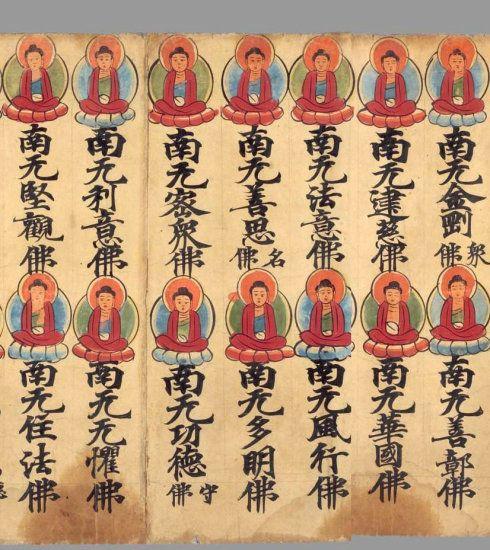 南无金剛衆佛
南无善鄣佛
南无建慈佛
南无華國佛
南无法意佛
南无風行佛
南无善思名佛
南无多明佛
南无密衆佛
南无功德守佛
南无利意佛
南无无懼佛
南无堅觀佛
南无住法佛